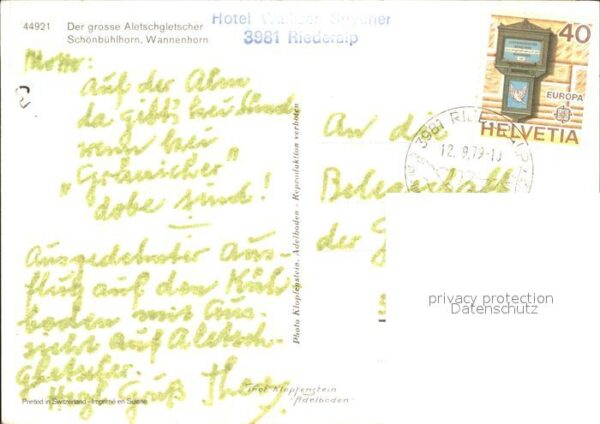 44921 Der grosse Aletschgletscher
Schönbühlhorn, Wannenhorn
Hotel Walliser
3981 Riederalp
40
EUROPA
HELVETIA
3981 RIEDERALP
12.9.79-1
Motto:
auf der Alm
da gibts kei Sünd
wenn kei
"Gränicher"
dobe sind!
Ausgedehnter Aus-
flug auf den Küh-
boden mit Aus-
sicht auf Aletsch-
gletscher.
Herzl. Gruß
An die
Belegschaft
der
Photo Klopfenstein, Adelboden - Reproduktion verboten
privacy protection
Datenschutz
Phot Klopfenstein
-Adelboden-
Printed in Switzerland - Imprimé en Suisse